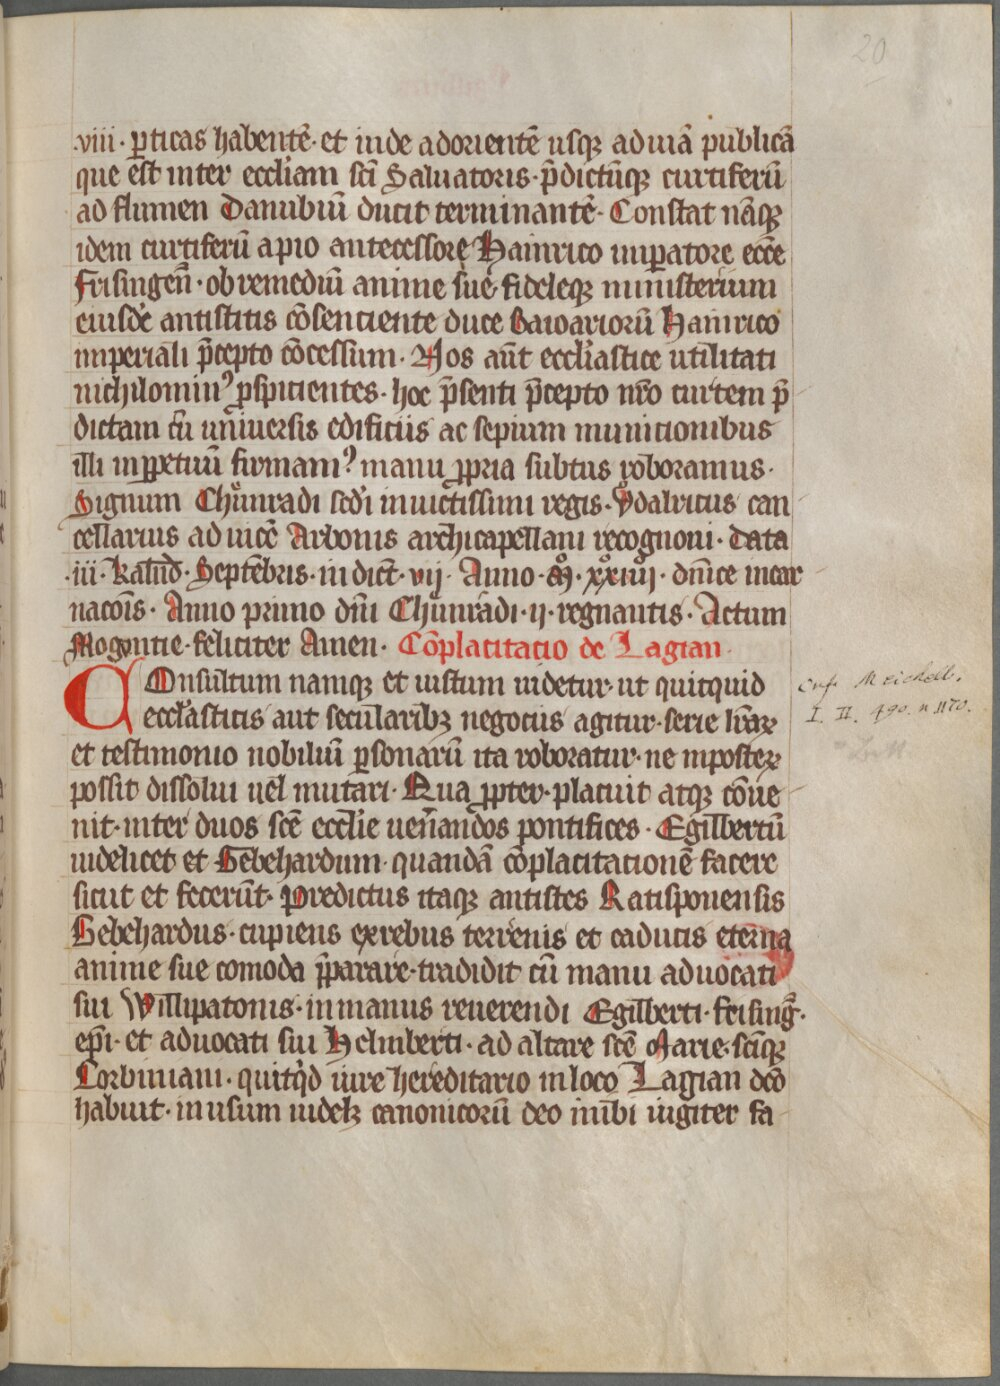 20
.viii. ꝑticas habentē. et inde ad orientē usqꝫ ad uiā publicā
que est inter eccl̓iam sc̄i Saluatoris. p̄dictūqꝫ curtiferū
ad flumen Danubiū ducit terminantē. Constat nāqꝫ
idem curtiferū a pio antecessore Hainrico imꝑatore ecc̄e
Frisingen̄. ob remediū anime sue. fideleqꝫ ministerium
eiusdē antistitis cōsenciente duce Baioariorū Hainrico
imperiali p̄cepto cōcessum. Nos aūt eccl̓iastice utilitati
nichilominꝰ ꝓspicientes. hoc p̄senti p̄cepto nr̄o curtem p̄
dictam cū uniuersis edificiis ac sepium municionibus
illi in ꝑpetuū firmamꝰ manu ꝓpria subtus roboramus.
Signum Chůnradi sc̄di inuictissimi regis. Ůdalricus can
cellarius ad uicē Arbonis archicapellani recognoui. Data
.iii. kalend̄. Septēbris. indict̄. vij. Anno. M̊. xxiiij. dn̄ice incar
nacōis. Anno primo dn̄i Chůnradi. ij. regnantis. Actum
Mogontie. feliciter Amen. Cōplacitacio de Lagian.
COnsultum namqꝫ et iustum uidetur. ut quitquid
eccl̓iasticis aut secularibꝫ negociis agitur. serie lr̄aꝝ
et testimonio nobiliū ꝑsonarū ita roboratur. ne in posteꝝ
possit dissolui uel mutari. Qua ꝓpter. placuit atqꝫ cōue
nit. inter duos sc̄e eccl̓ie uen̓andos pontifices. Egilbertū
uidelicet et Gebehardum. quandā cōplacitacionē facere
sicut et fecerūt. Predictus itaqꝫ antistes Ratisponensis
Gebehardus. cupiens ex rebus terrenis et caducis eterna
anime sue comoda p̄parare. tradidit cū manu aduocati
sui Willipatonis. in manus reuerendi Egilberti. frising̓.
ep̄i. et aduocati sui Helmberti. ad altare sc̄e Marie. sc̄iqꝫ
Corbiniani. quitq̓d iure hereditario in loco Lagian dc̄o
habuit. in usum uidelꝫ canonicorū deo inibi iugiter fa
cnf. Meichelb.
I. II. 490. n. 1170.